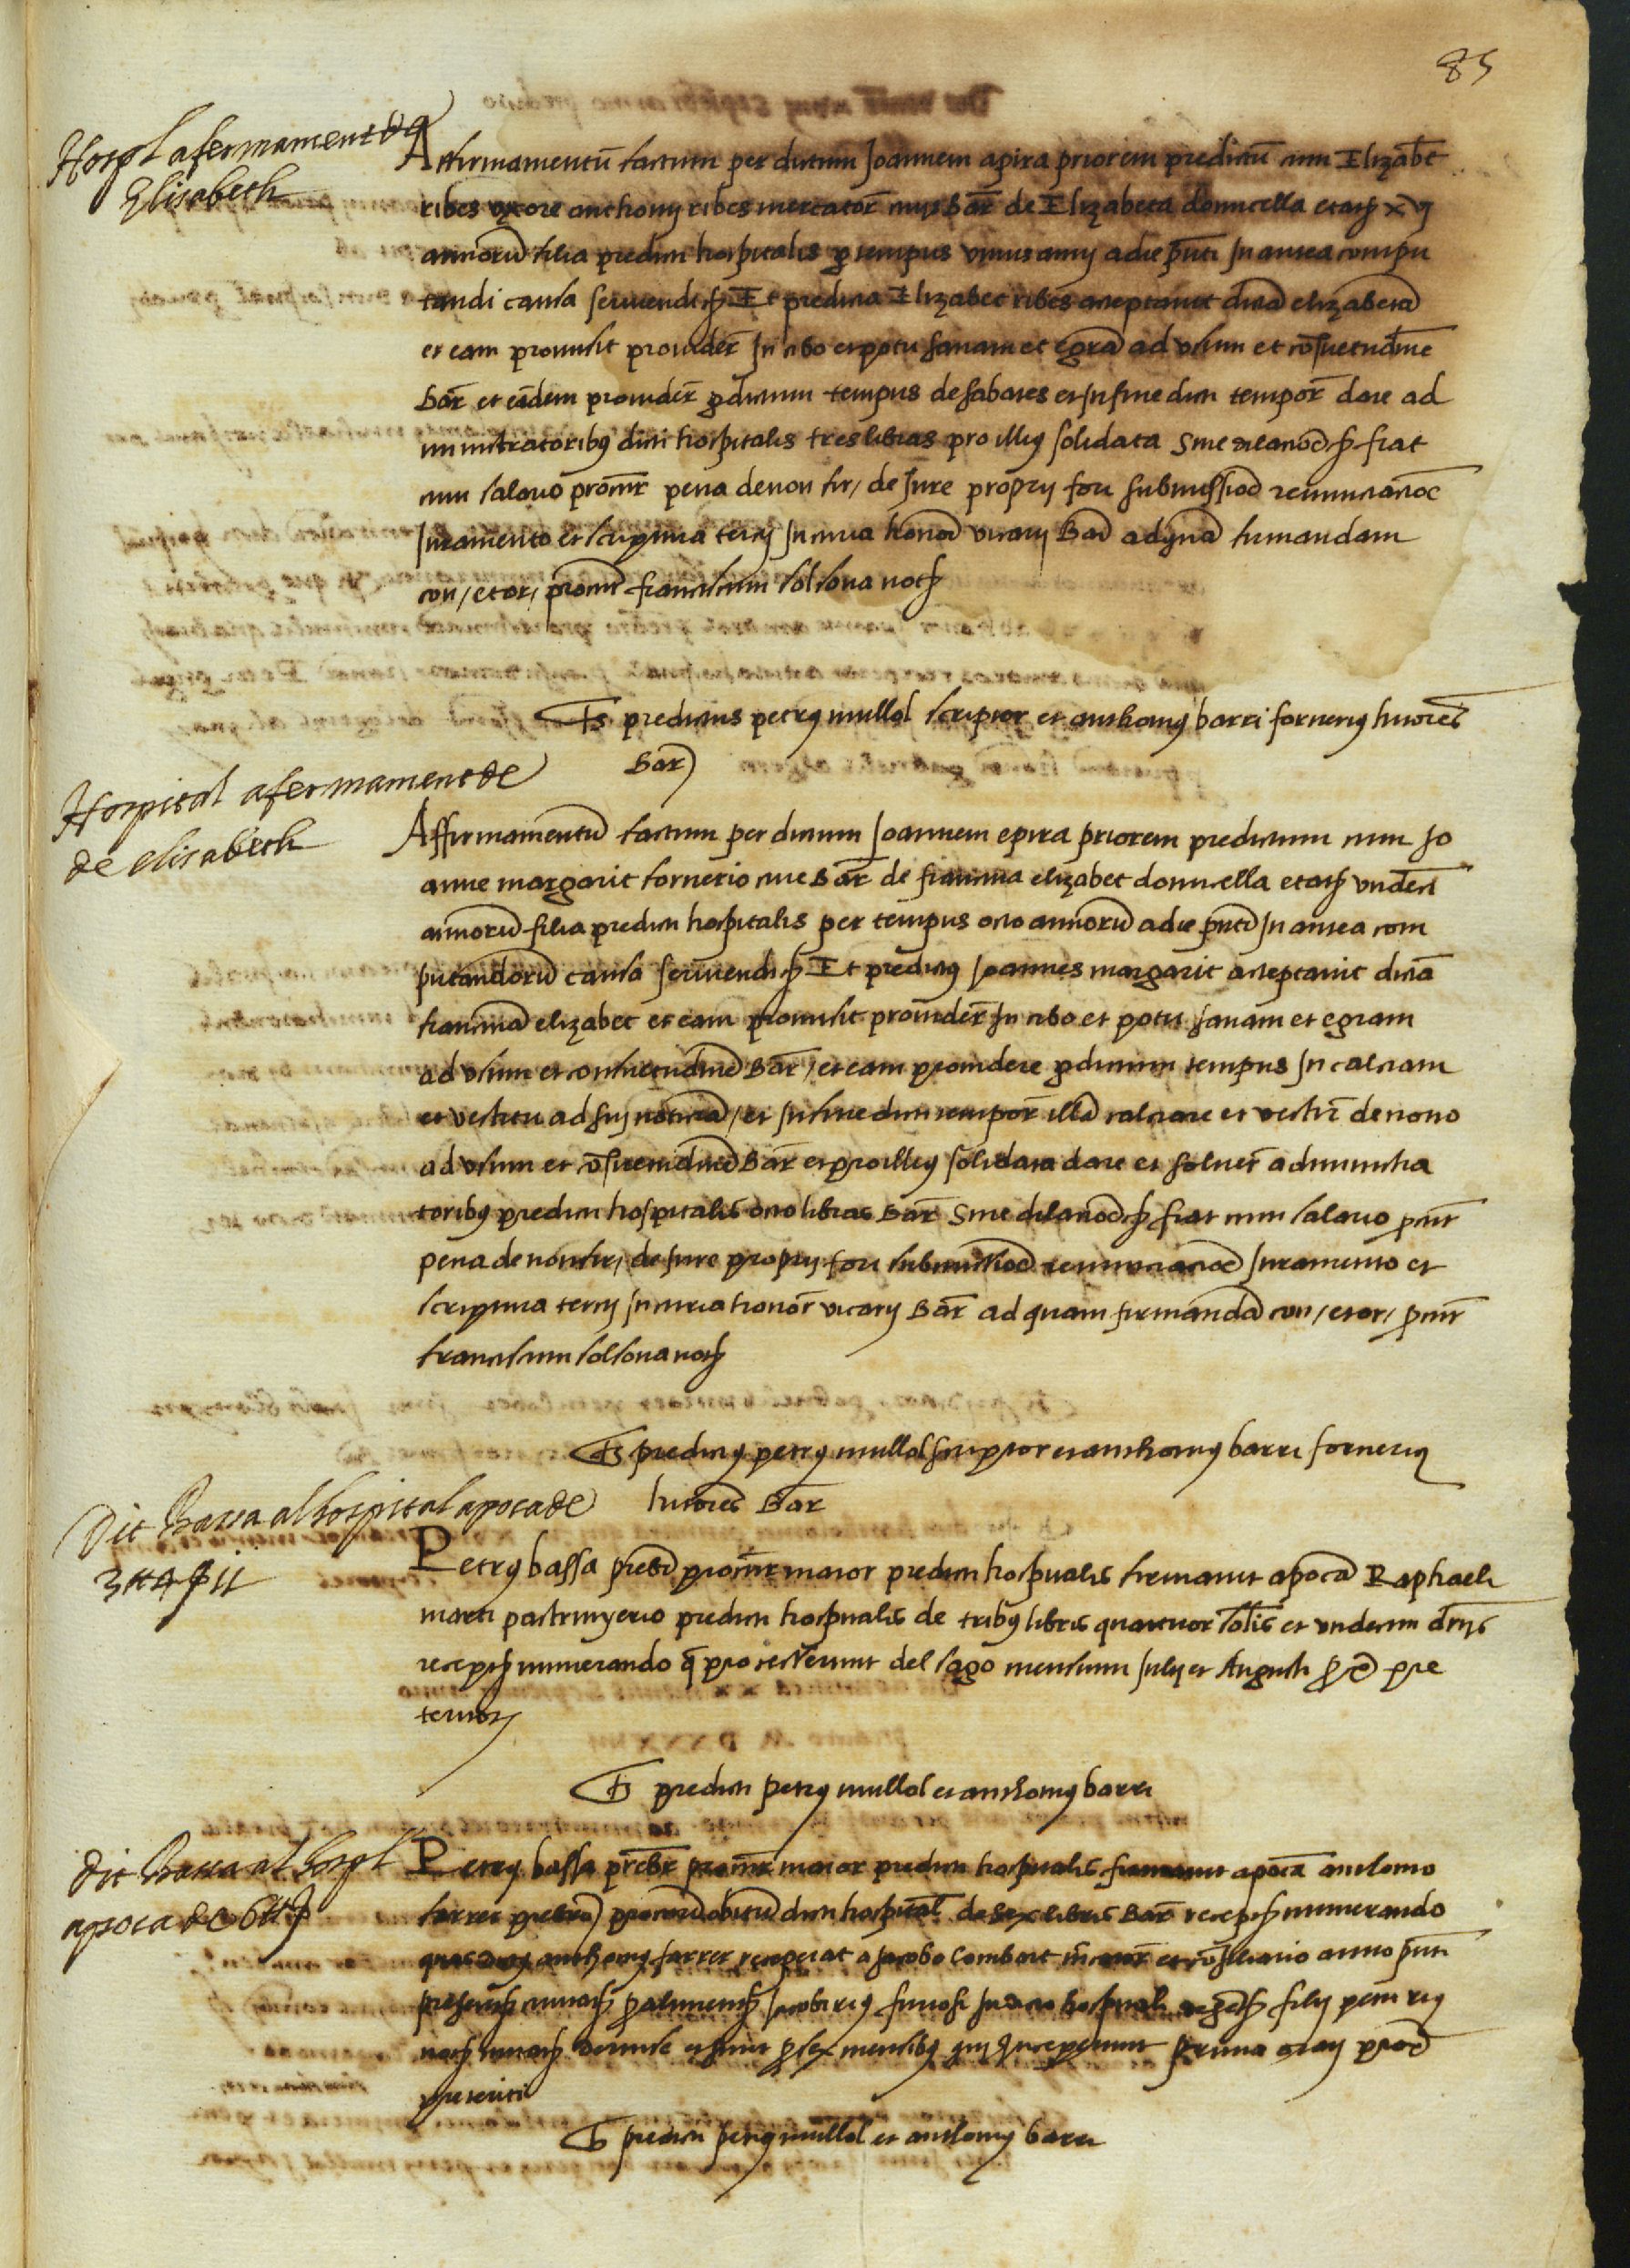 85
Hospl afermament de
Elisabeth
Affirmamentũ factum per dictum Joannem apira priorem predictũ cum Elizabet
ribes uxore anthonij ribes mercatoř civis Bař de Elizabeta domicella etatis xvj
annorũ filia predicti hospitalis per tempus unius anni a die pñti in antea compu
tandi causa serviendi etc Et predicta Elizabet ribes acceptavit dictã elizabetã
et eam promisit provideř in cibo et potu sanam et egrã ad usum et cõsuetudinẽ
Bař et eidem provideř per dictum tempus de sabates et in fine dicti tempoř dare ad
ministratoribus dicti hospitalis tres libras pro illius solidata sine dilacioẽ etc fiat
cum salario procur̃ pena de non fir/ de Jure proprij fori submissioẽ renunciacioẽ
Juramento et scriptura tercij in curia honoř vicarij Bař ad quã firmandam
con/ et or/ procur̃ franciscum solsona noť
Ts predictus petrus mullol scriptor et anthonius barri fornerius
Bař
Hospital afermament de
de elisabeth
Affirmamentũ factum per dictum Joannem epira priorem predictum cum Jo
anne margarit fornerio cive Bař de francina elizabet domicella etatis undeci
annorũ filia predicti hospitalis per tempus octo annorũ a die pñti in antea com
putandorũ causa serviendi etc Et predictus Joannes margarit acceptavit dictã
francinã elizabet et eam promisit provideř in cibo et potu sanam et egram
ad usum et consuetudinẽ Bař/ et eam providere per dictum tempus in calciatu
et vestitu ad sui noticiã/ et in fine dicti tempoř illã calciare et vestiř de novo
ad usum et cõsuetudinẽ Bař et pro illius solidata dare et solveř administra
toribus predicti hospitalis octo libras Bař sine dilacioẽ etc fiat cum salario procur̃
pena de non fir/ de Jure proprij fori submissioẽ renunciacioẽ Juramento et
scriptura tercij in curia honoř vicarij Bař ad quam firmandã con/ et or/ procur̃
franciscum solsona noť
Ts predictus petrus mullol scriptor et anthonius barri fornerius
Bar
Dit Bassa al hospital apoca de
3 ll 4 s 11
Petrus bassa prebr̃ procur̃ maior predicti hospitalis firmavit apocã Raphaeli
marti predicti hospitalis de tribus libris quatuor solis et undecim drijs
receptis numerando del mensium Julij et Augusti pre
teritor
Ts predicti petrus mullol et anthonius barri
dit Bassa al hospl
apoca de 6 ll
Petrus bassa prebř procur̃ maior predicti hospitalis firmavit apocã anthonio
farrer dicti hospital de sex libris Bař receptis numerando
quas anthonius farrer receperat a Jacobo anno
Jacobi rius in dicto hospitali filij petri rius
sex mensibus prima
preteriti
Ts predicti petrus mullol et anthonius barri